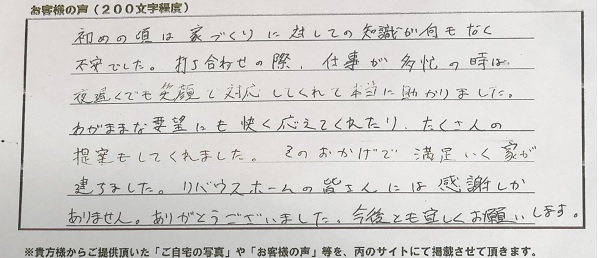 お客様の声（200文字程度）
初めの頃は家づくりに対しての知識が何もなく
不安でした。打ち合わせの際、仕事が多忙の時は
夜遅くでも笑顔で対応してくれて本当に助かりました。
わがままな要望にも快く応えてくれたり、たくさんの
提案もしてくれました。そのおかげで満足いく家が
建ちました。リバウスホームの皆さんには感謝しか
ありません。ありがとうございました。今後とも宜しくお願いします。
※貴方様からご提供頂いた「ご自宅の写真」や「お客様の声」等を、丙のサイトにて掲載させて頂きます。